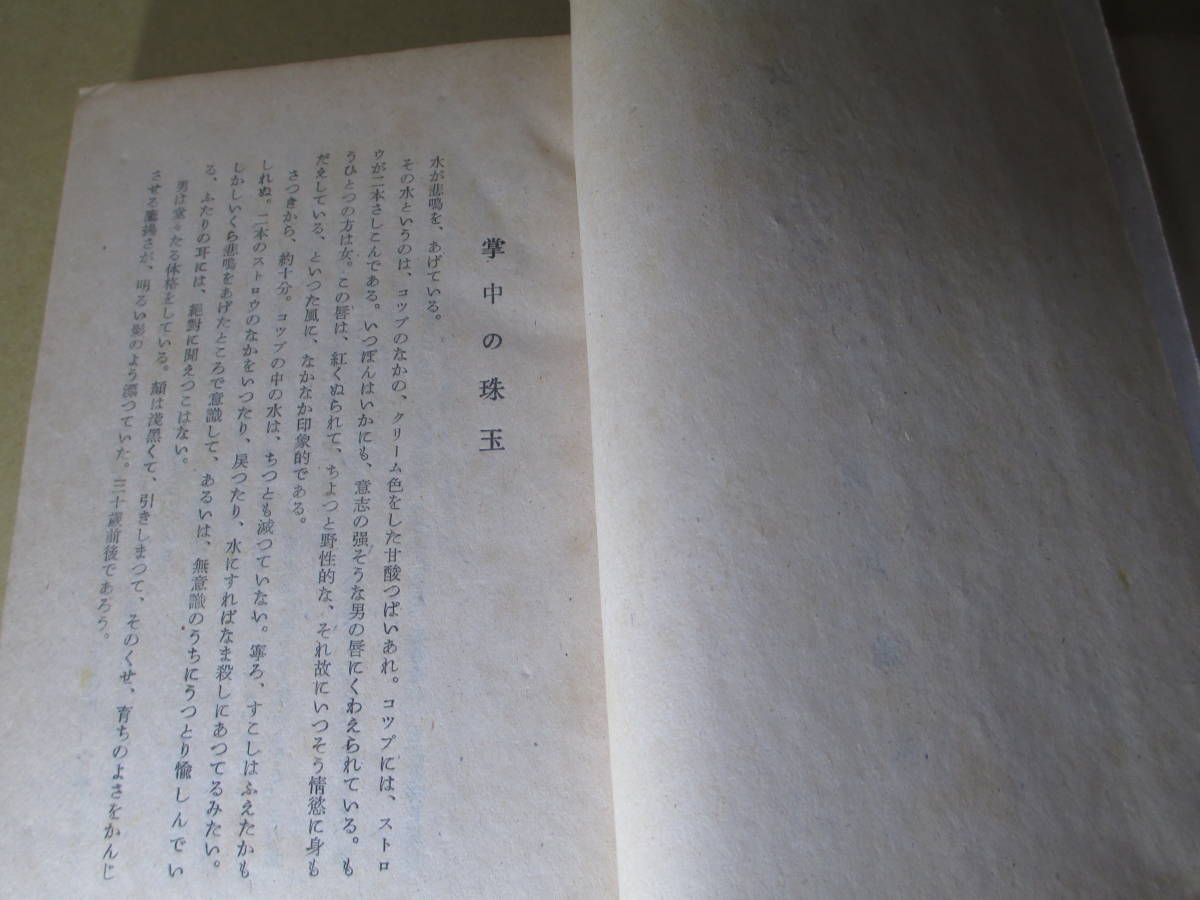 掌中の珠玉
水が悲鳴を、あげている。
その水というのは、コツプのなかの、クリーム色をした甘酸つぱいあれ。コツプには、ストロ
ウが二本さしこんである。いつぽんはいかにも、意志の强そうな男の唇にくわえられている。も
うひとつの方は女。この唇は、紅くぬられて、ちよつと野性的な、それ故にいつそう情慾に身も
だえしている、といつた風に、なかなか印象的である。
さつきから、約十分。コツプの中の水は、ちつとも減つていない。寧ろ、すこしはふえたかも
しれぬ。二本のストロウのなかをいつたり、戻つたり、水にすればなま殺しにあつてるみたい。
しかしいくら悲鳴をあげたところで意識して、あるいは、無意識のうちにうつとり愉しんでい
る、ふたりの耳には、絕對に聞えつこはない。
男は堂々たる体格をしている。顔は淺黑くて、引きしまつて、そのくせ、育ちのよさをかんじ
させるさが、明るい影のよう漂つていた。三十歲前後であろう。